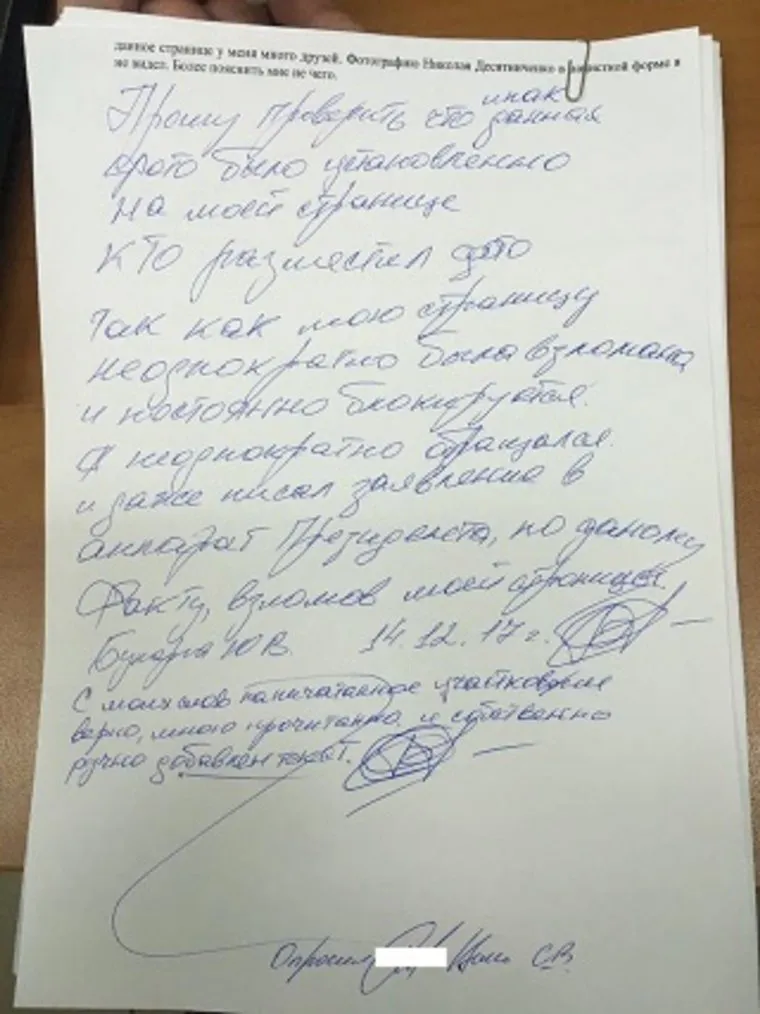 данное странице у меня много друзей. Фотографию Николая Десятниченко в нацисткой форме я
не видел. Более пояснить мне не чего.
Прошу проверить что и как данная
фото было установленно
на моей странице
кто разместил фото
Так как мою страницу
неоднократно была взломана
и постоянно блокируется.
Я неоднократно обращался.
и даже писал заявление в
аппарат Президента, по данному
Факту, взломов моей страницы.
Ю В. 14.12.17 г.
С моих слов напичатанное участковым
верно, мною прочитанно. и собственно
ручно добавлен текст.
Опросил С.В.